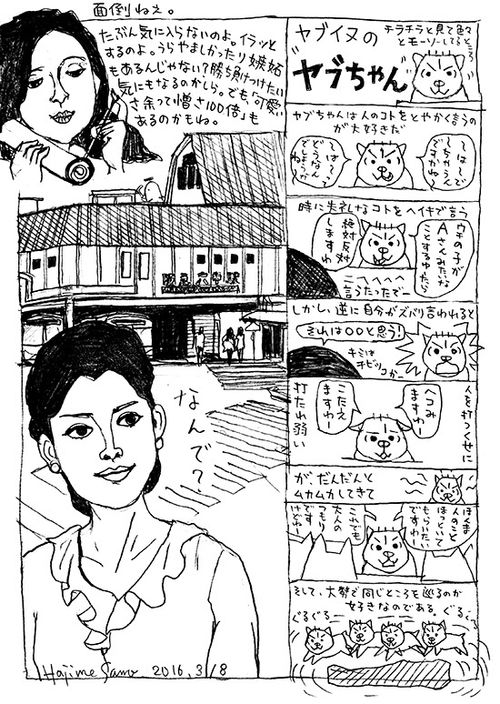 面倒ねぇ。
たぶん気に入らないのよ。イラッと
するのよ。うらやましかったり嫉妬
もあるんじゃない?勝ち負けつけたい
気にもなるのかしら。でも、可愛い
さ余って憎さ100倍」も
あるのかもね。
なんで?
Hajime Sano 2016.3/8
ヤブイヌの
"ヤブちゃん"
チラチラと見て色々
とモーソーしてるところ
ヤブちゃんは人のコトをとやかく言うの
が大好きだ
時に失礼なコトをヘイキで言う
ウチの子が
Aさんみたいな
ことするゆたら
絶対反対
しますわ
ニヘヘヘヘ
言うたったでー
しかし、逆に自分がズバリ言われると
それは〇〇と思う!
キミは
チビッコかー
人を打つくせに
ヘコみ
ますわー
こたえ
ますわー
打たれ弱い
が、だんだんと
ムカムカしてきて
ほんま
人のこと
ほっといて
もらいたい
ですわー
これでも
大人の
つもり
です
けどねー
そして、大勢で同じところを巡るのが
好きなのである。ぐるぐる
ぐるぐるー